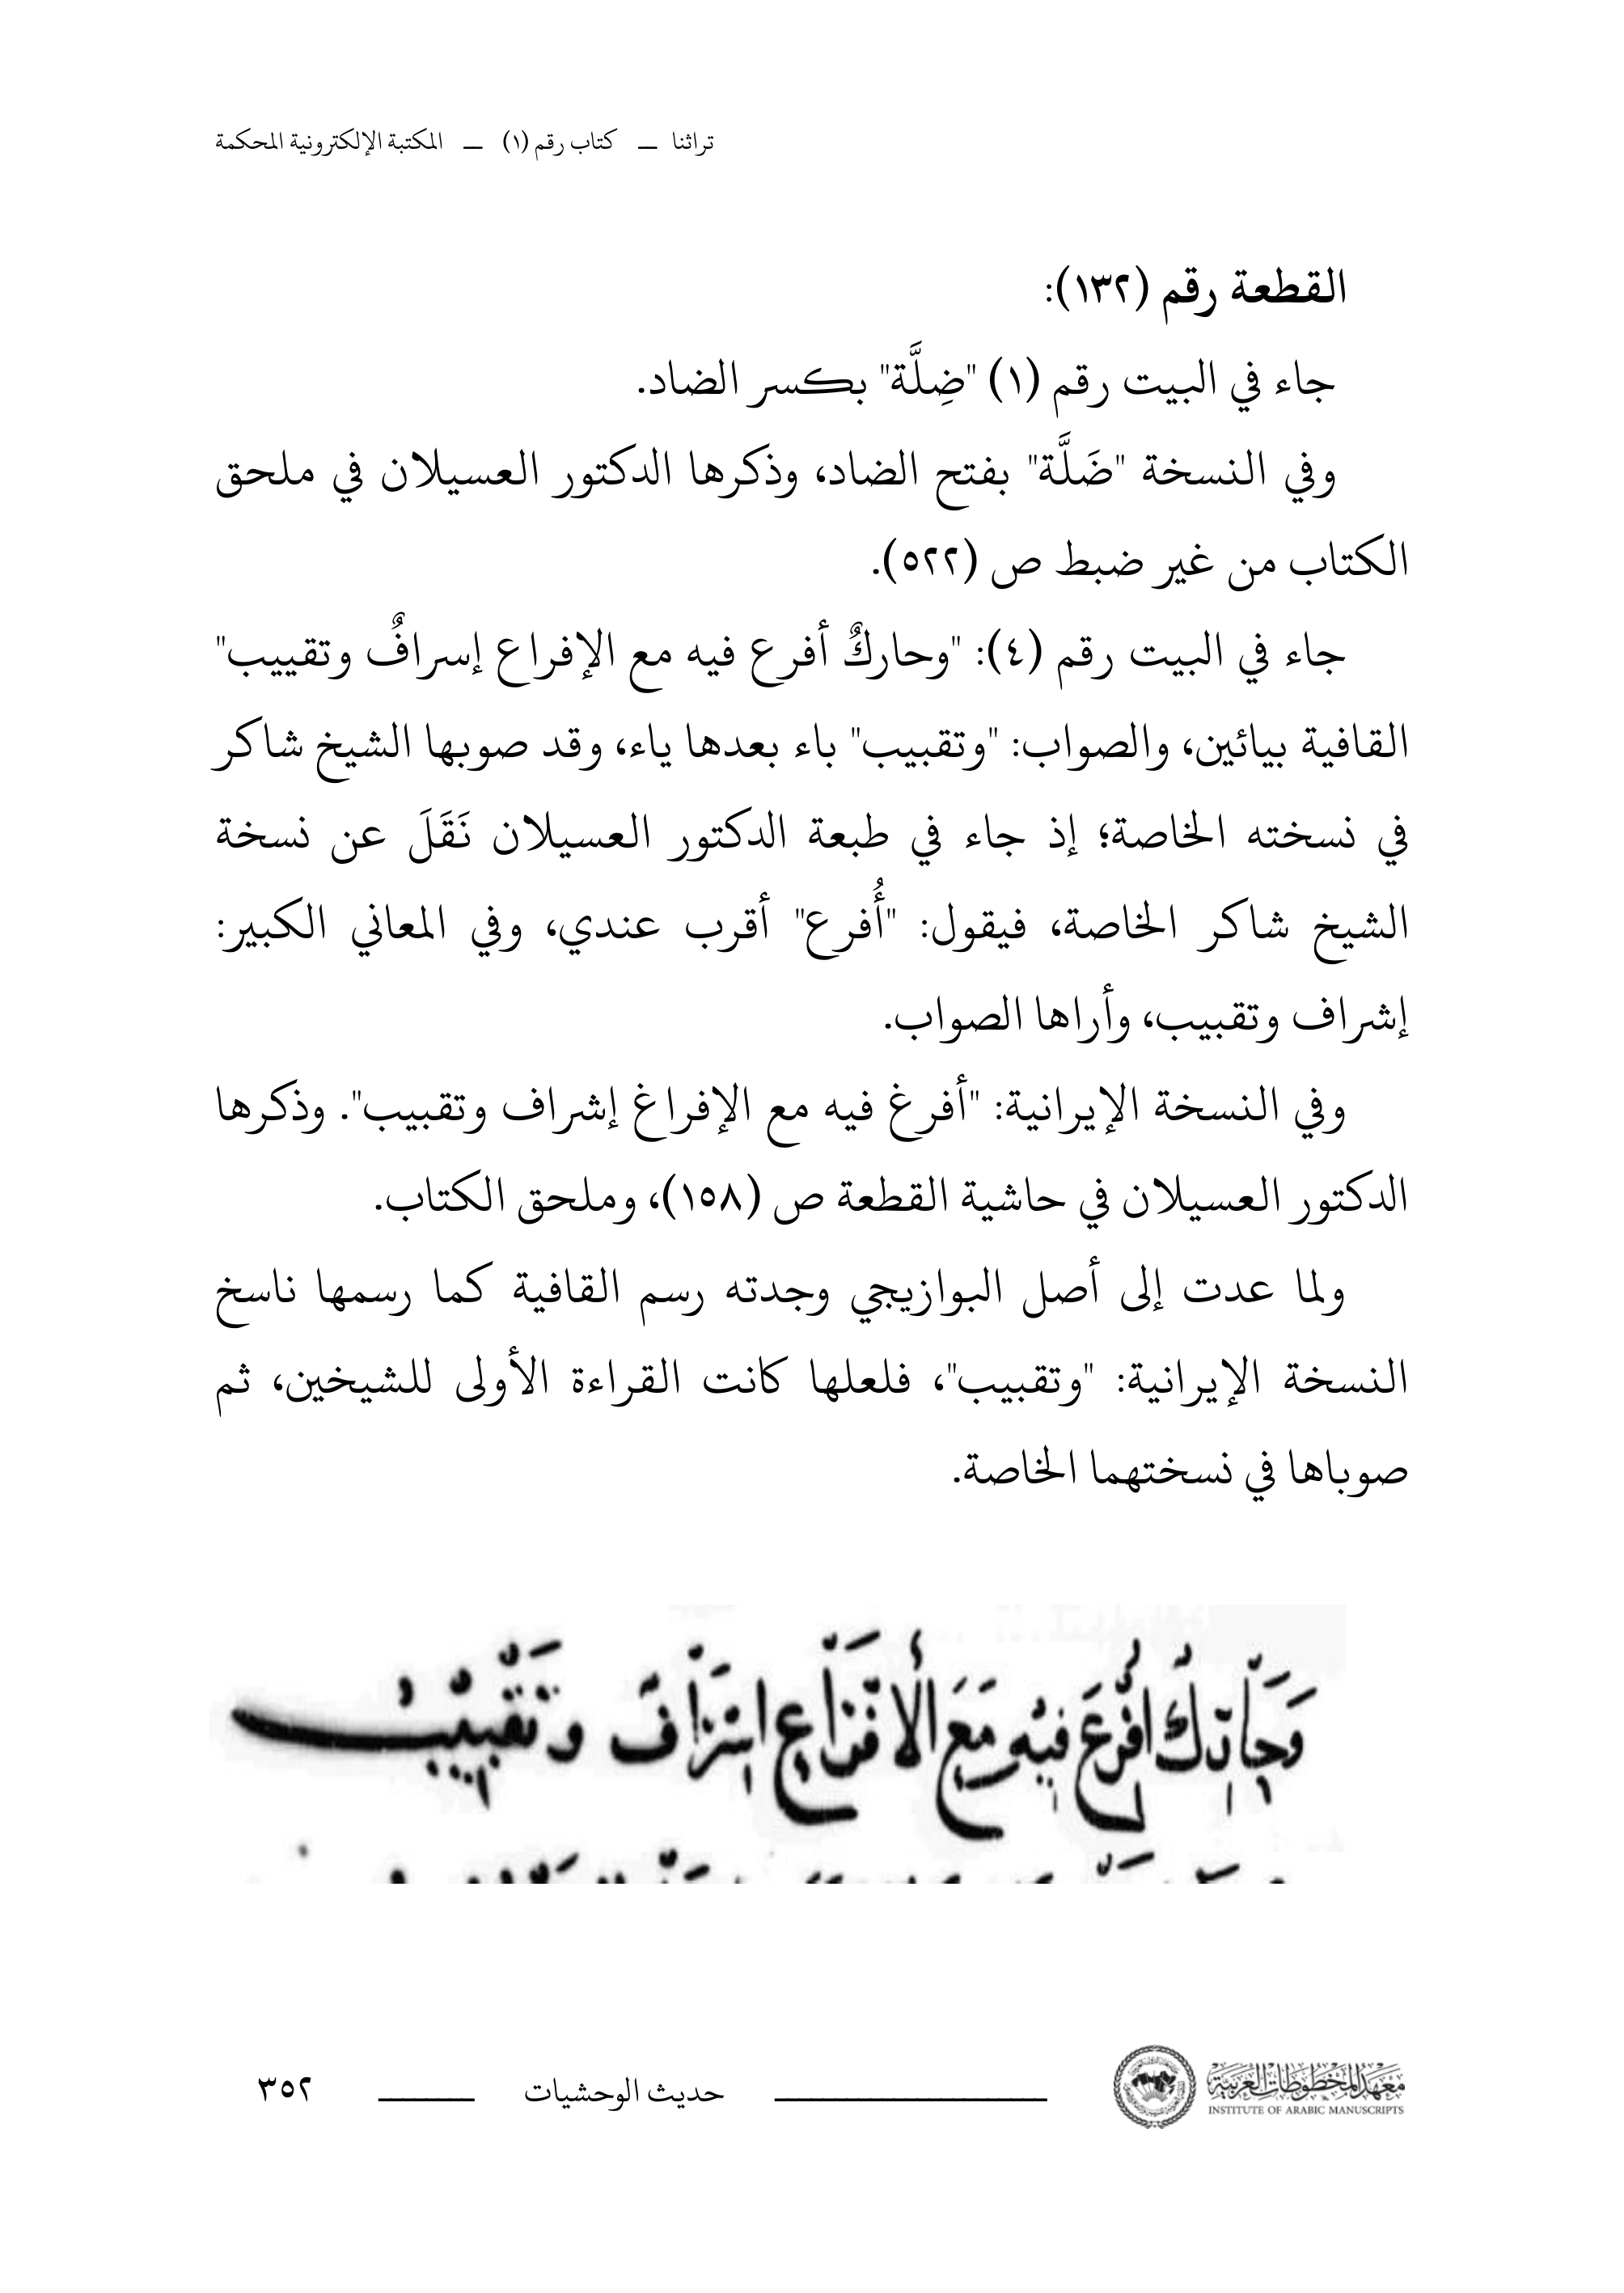 تراثنا — كتاب رقم (١) — المكتبة الإلكترونية المحكمة
القطعة رقم (١٣٢):
جاء في البيت رقم (١) "ضِلَّة" بكسر الضاد.
وفي النسخة "ضَلَّة" بفتح الضاد، وذكرها الدكتور العسيلان في ملحق
الكتاب من غير ضبط ص (٥٢٢).
جاء في البيت رقم (٤): "وحاركٌ أفرع فيه مع الإفراع إسرافٌ وتقييب"
القافية بيائين، والصواب: "وتقبيب" باء بعدها ياء، وقد صوبها الشيخ شاكر
في نسخته الخاصة؛ إذ جاء في طبعة الدكتور العسيلان نَقَلَ عن نسخة
الشيخ شاكر الخاصة، فيقول: "أُفرع" أقرب عندي، وفي المعاني الكبير:
إشراف وتقبيب، وأراها الصواب.
وفي النسخة الإيرانية: "أفرغ فيه مع الإفراغ إشراف وتقبيب". وذكرها
الدكتور العسيلان في حاشية القطعة ص (١٥٨)، وملحق الكتاب.
ولما عدت إلى أصل البوازيجي وجدته رسم القافية كما رسمها ناسخ
النسخة الإيرانية: "وتقبيب"، فلعلها كانت القراءة الأولى للشيخين، ثم
صوباها في نسختهما الخاصة.
وَحَارِكٌ أُفْرِعَ فيهِ مَعَ الأفْرَاعِ اسْرَافٌ وَتَقْبِيْبُ
معهد المخطوطات العربية
INSTITUTE OF ARABIC MANUSCRIPTS
حديث الوحشيات
٣٥٢